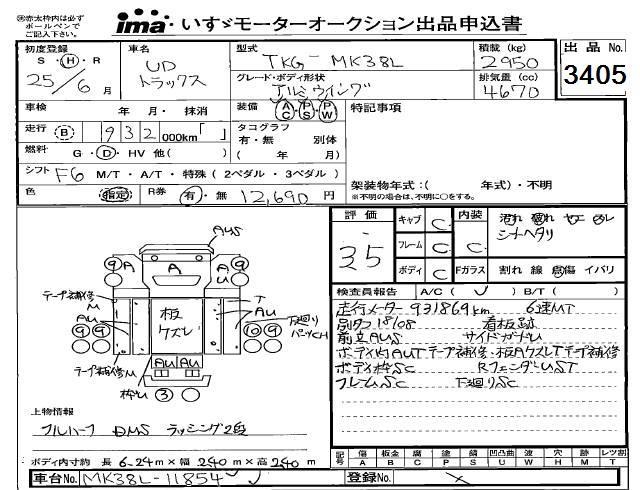 ※赤太枠内は必ず
ボールペンで
ご記入下さい。
ima いすゞモーターオークション出品申込書
初度登録
S・H・R
25/6月
車名
UD
トラックス
型式
TKG-MK38L
グレード・ボディ形状
アルミウイング
積載(kg)
2950
排気量(cc)
4670
出品No.
3405
車検 年 月・抹消
装備 AC PS PW
特記事項
走行 B 932000km「 」
タコグラフ
有・無 別体
( 年 月)
燃料 G・D・HV 他( )
シフト F6 M/T・A/T・特殊(2ペダル・3ペダル)
色 (指定) R券 有・無 12,690円
架装物年式:( 年式)・不明
※不明の場合は、不明に○をする。
評価
3.5
キャブ C
フレーム C
ボディ C
内装 C
Fガラス
汚れ 破れ ヤニ ヨレ
シートヘタリ
割れ 線 点傷 イバリ
検査員報告 A/C( ) B/T( )
走行メーター931869km 6速MT
副タコ18/08 看板跡
前立AUS サイドガードU
ボディ内AUTテープ補修・板AウズレTテープ補修
ボディ枠SC RフェンダーUST
フレームSC 下廻りSC
AUS
⑨ A A A ⑨
テープ補修
M
AU
板
ケズレ
T
AU
下廻り
パーツCH
⑨⑨
⑩⑨
テープ補修M
AU AU
枠U ③
上物情報
フルハーフ DMS ラッシング2段
ボディ内寸約 長6.24m×幅240m×高240m
記号 傷A 板金B 腐C 塗P 錆S 凹凸曲U 波W 穴H 跡M レツ割T
車台No. MK38L-11854
登録No.